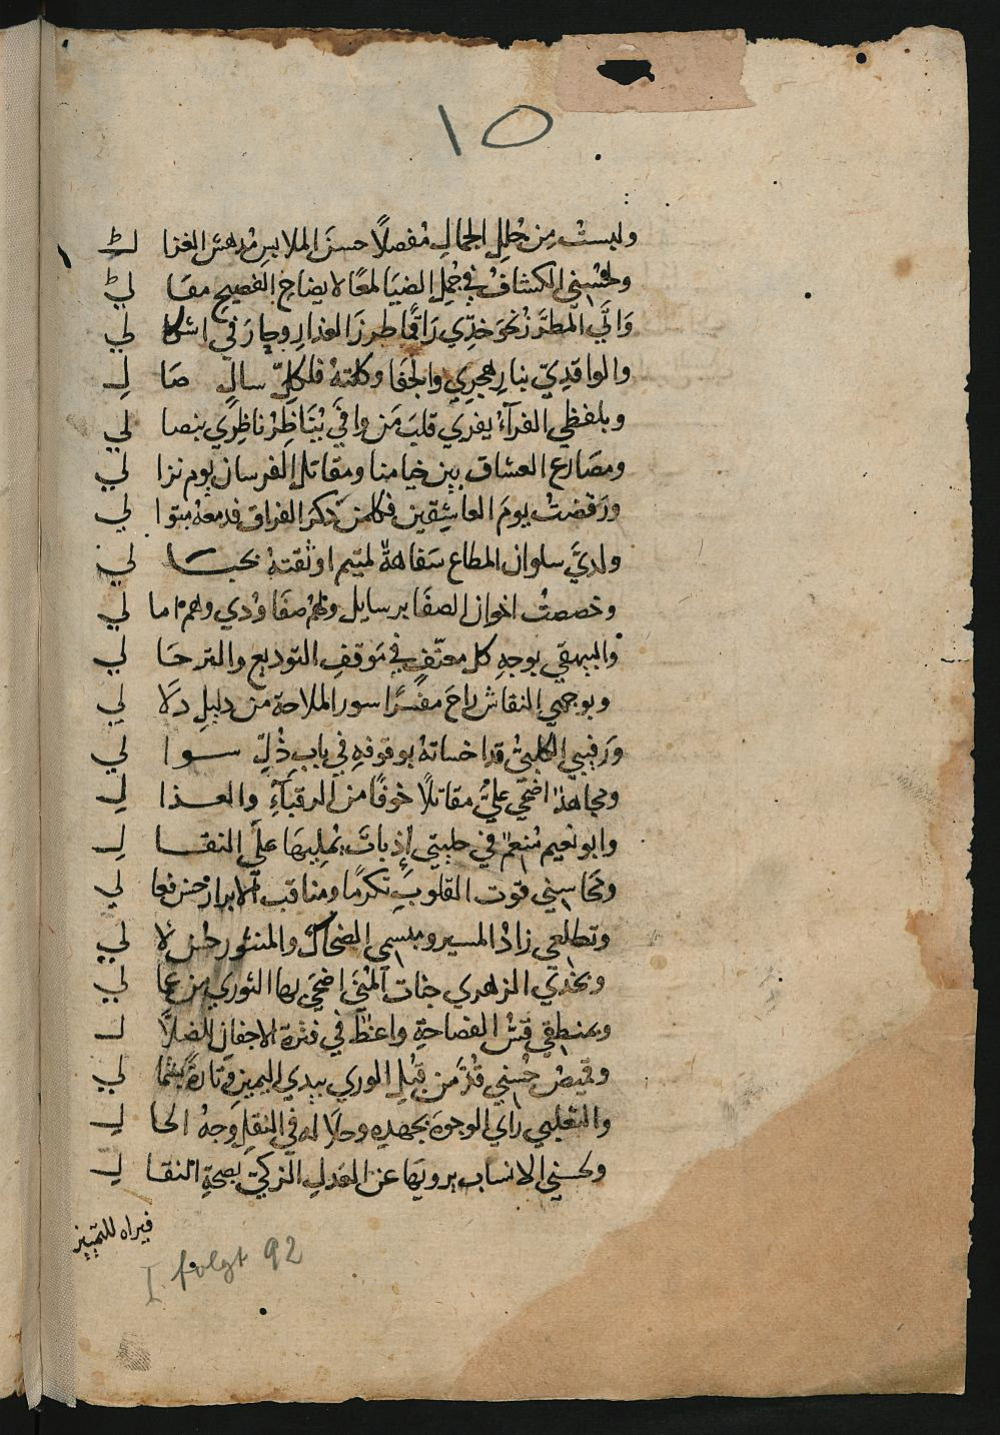 ١٥
ولبستُ من حُللِ الجمالِ مُفصلًا حسنَ الملابسِ مُدهشَ الغزا لي
ولحُسني الكشافُ في جُملِ الضيَا لمعًا لايضاحِ الفصيحِ مقَا لي
وَاتَى المطرّزُ نحوَ خدّي رَاقمًا طرزَ العذارِ وحارَ في اشكا لي
والواقديّ بنارِ هجري والجفَا وكلتهُ فلكلّ سالٍ صَا لِ
وبلفظي الفرآءُ يفري قلبَ مَن وافَى يُنَاظِرُ ناظِري بنصا لي
ومصَارع العشاق بين خيامنا ومقاتل الفرسان يوم نزا لي
ورَفضتُ يومَ العاشِقين فكلمن ذكرَ الفراق فدمعهُ متوا لي
ولديَّ سلوان المطاع سَفاهةٌ لمتيم اوثقتهُ بحبا لي
وخصصتُ اخوان الصفَا برسايل ولهُم صفَا وُدي وهم اما لي
والبيهقي بوجهِ كل معنّفٍ في مَوقفِ التوديع والترحَا لي
وبوجهي النقاش راحَ مفسّرًا سور الملاحة من دليلِ دَلا لي
ورَقيبي الكلبيُّ قد اخساتهُ بوقوفهِ في بابِ ذُلِّ سوا لي
ومجاهدٌ اضحَى عليَّ مقاتلًا خوفًا من الرقبآءِ والعذا لِ
وابو نعيم مُنعمٌ في حليتي إذ باتَ يُمليهَا علَى النقا لِ
ومحَاسِني قوت القلوبِ تكرمًا ومناقب الابرار حسن فعا لي
وتطلعي زادُ المسير ومبسمي الضحاكُ والمنثور لا لي
وبخدّي الزهري جنات المُنَى اضحَى بها الثوري من عما لي
وبمنطقي قسُّ الفصاحةِ واعظٌ في فترة الاجفان للضلا لِ
وقميصُ حُسني قُدَّ من قبُلِ الوري بيدي اليمين وتارةً بشما لي
والثعلبي راي الوجوهَ بجهدهِ وحلَا له في النقلِ وجهُ الحا لِ
ولحسني الانساب يرويهَا عن العَدلِ الزكيّ بصحةِ النقا لِ
فيراه للتمييز
I folgt 92